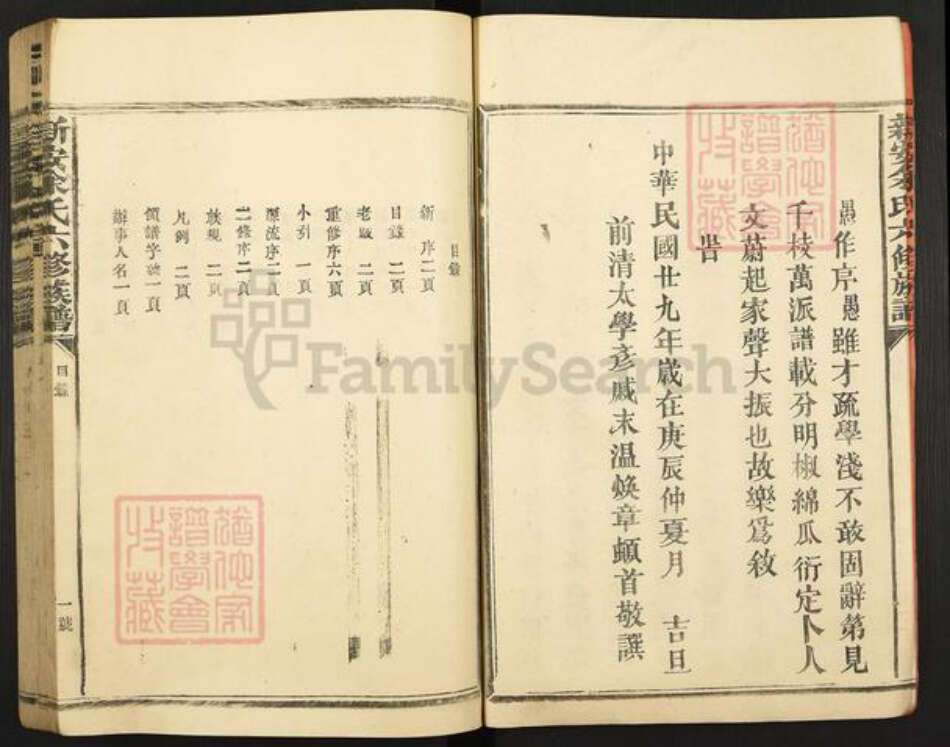 愚作序愚雖才疏學淺不敢固辭第見
千枝萬派譜載分明椒綿瓜衍定卜人
文蔚起家聲大振也故樂爲敘
旹
中華民國廿九年歲在庚辰仲夏月 吉旦
前清太學彥戚末温焕章頓首敬譔
新安余氏六修族譜
目錄
新序二頁
目錄 二頁
老跋 二頁
重修序六頁
小引 一頁
源流序二頁
二修序二頁
家規 二頁
凡例 二頁
領譜字號一頁
辦事人名一頁
新安余氏六修族譜
目錄
一號
FamilySearch